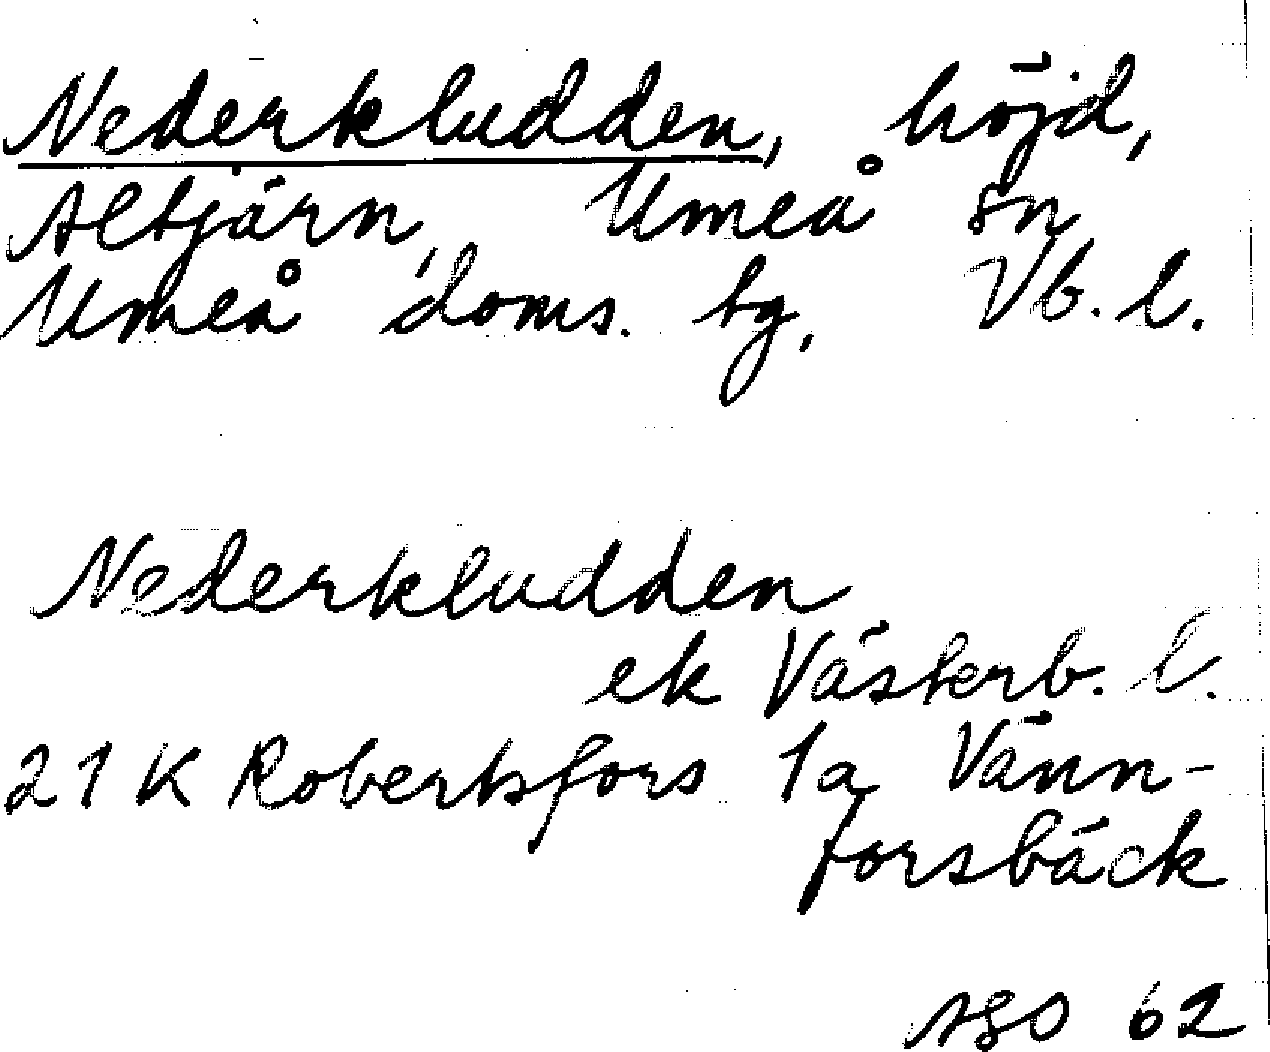 Nederkludden, höjd,
Altjärn, Umeå sn
Umeå doms. tg, Vb. l.
Nederkludden
ek Västerb. l.
21 K Robertsfors 1a Vänn-
forsbäck
ASO 62